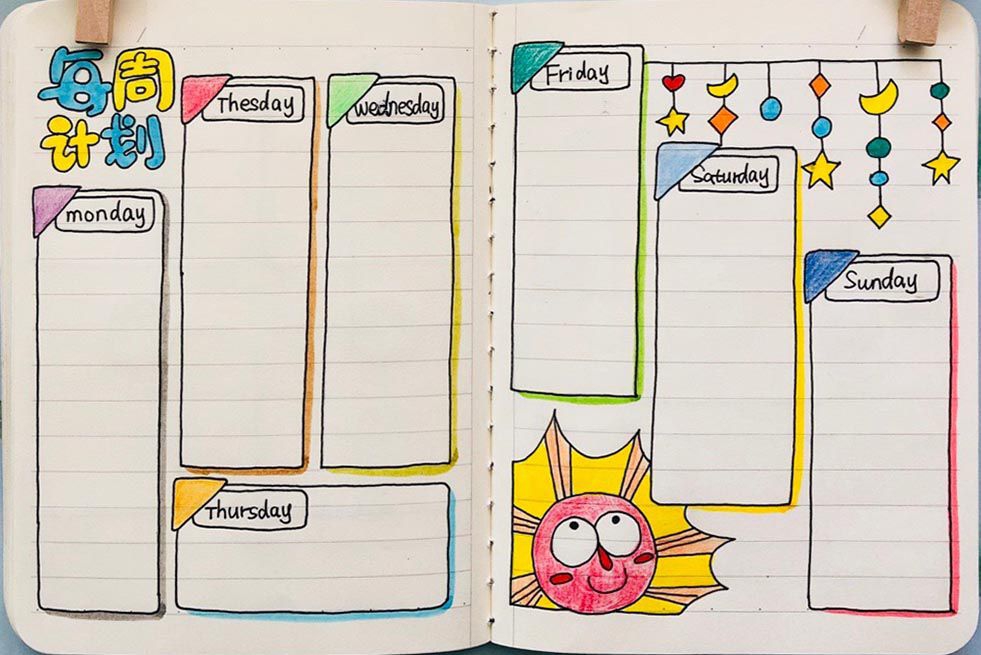 每周
计划
monday
Thesday
wednesday
Thursday
Friday
Saturday
Sunday